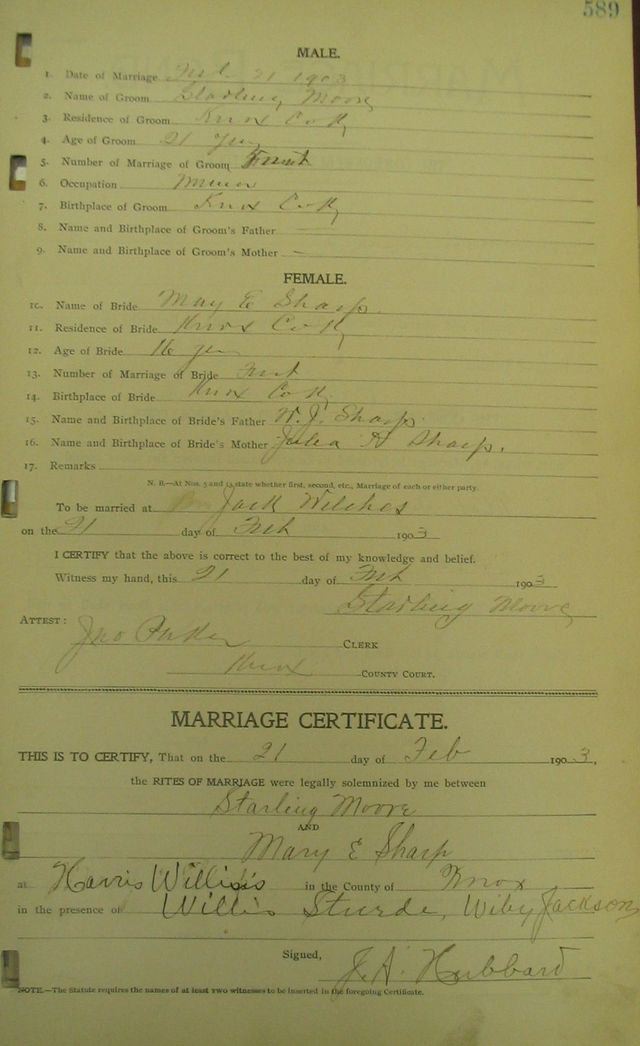 589
MALE.
1. Date of Marriage Feb. 21 1903
2. Name of Groom Starling Moore
3. Residence of Groom Knox Co Ky
4. Age of Groom 21 yrs
5. Number of Marriage of Groom First
6. Occupation Miner
7. Birthplace of Groom Knox Co Ky
8. Name and Birthplace of Groom's Father
9. Name and Birthplace of Groom's Mother
FEMALE.
10. Name of Bride May E Sharp
11. Residence of Bride Knox Co Ky
12. Age of Bride 16 yrs
13. Number of Marriage of Bride First
14. Birthplace of Bride Knox Co Ky
15. Name and Birthplace of Bride's Father W. J. Sharp
16. Name and Birthplace of Bride's Mother Julea A Sharp.
17. Remarks
N. B.—At Nos. 5 and 13 state whether first, second, etc., Marriage of each or either party.
To be married at Jack
on the 21 day of Feb 1903
I CERTIFY that the above is correct to the best of my knowledge and belief.
Witness my hand, this 21 day of Feb 1903
Starling Moore
ATTEST: Jno Parker CLERK
Knox COUNTY COURT.
MARRIAGE CERTIFICATE.
THIS IS TO CERTIFY, That on the 21 day of Feb 1903,
the RITES OF MARRIAGE were legally solemnized by me between
Starling Moore
AND
Mary E Sharp
at Harris in the County of Knox
in the presence of Willis Wiley Jackson
Signed, J. A. Hubbard
NOTE.—The Statute requires the names of at least two witnesses to be inserted in the foregoing Certificate.